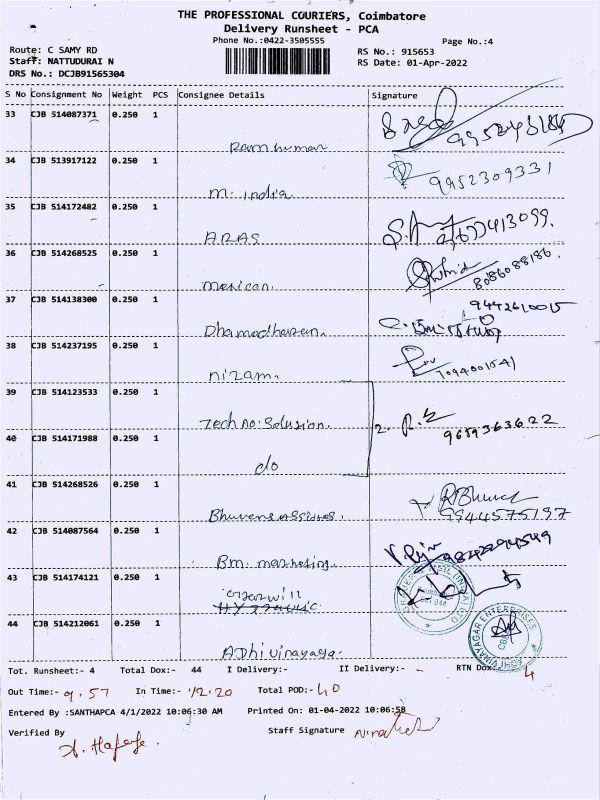 THE PROFESSIONAL COURIERS, Coimbatore
Delivery Runsheet - PCA
Phone No.:0422-3505555
Page No.:4
Route: C SAMY RD
RS No.: 915653
Staff: NATTUDURAI N
RS Date: 01-Apr-2022
DRS No.: DCJB91565304
S No Consignment No Weight PCS Consignee Details Signature
33 CJB 514087371 0.250 1
Ramkumar
34 CJB 513917122 0.250 1
M. India
9952309331
35 CJB 514172482 0.250 1
ARAS
36 CJB 514268525 0.250 1
Mexican.
8086088186.
37 CJB 514138300 0.250 1
9442610015
Dhamodharan.
38 CJB 514237195 0.250 1
Nizam.
39 CJB 514123533 0.250 1
Techno: Solusion.
9659363622
40 CJB 514171988 0.250 1
do
41 CJB 514268526 0.250 1
9944575197
42 CJB 514087564 0.250 1
Bm. Marketing.
9842294549
43 CJB 514174121 0.250 1
44 CJB 514212061 0.250 1
Adhi vinayaga.
ADHI VINAYAGAR ENTERPRISES
Tot. Runsheet:- 4 Total Dox:- 44 I Delivery:- II Delivery:- - RTN Dox:- 4
Out Time:- 9.57 In Time:- 12.20 Total POD:- 40
Entered By :SANTHAPCA 4/1/2022 10:06:30 AM Printed On: 01-04-2022 10:06:58
Verified By
Staff Signature